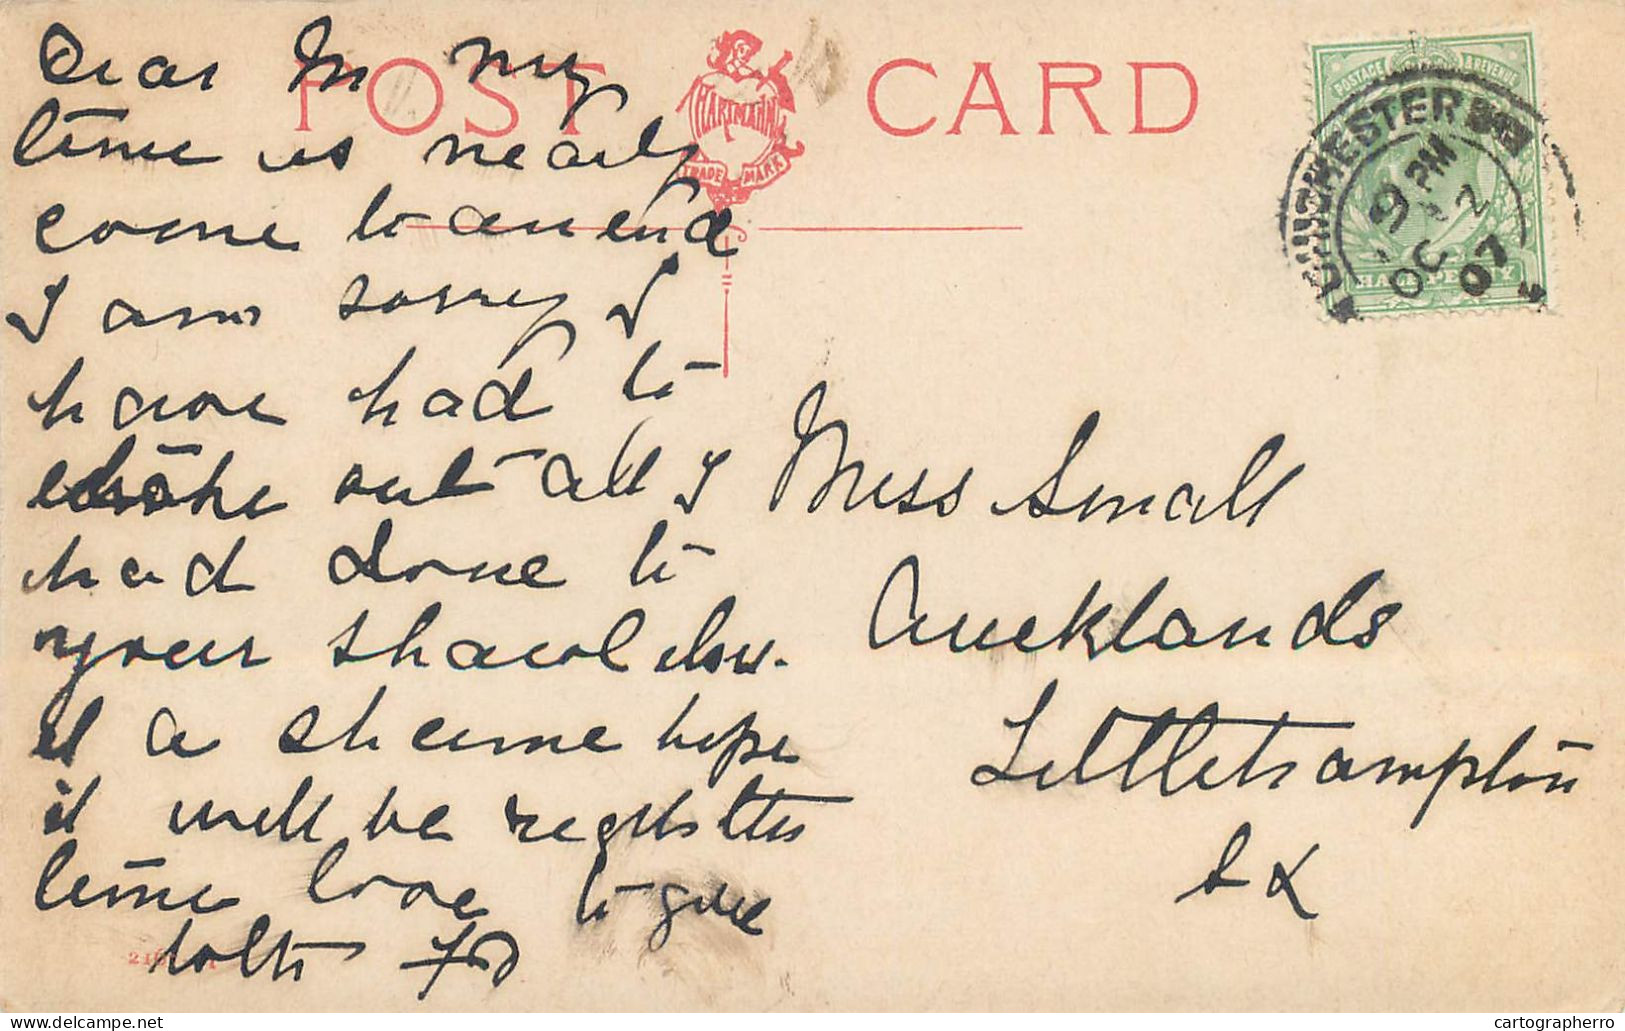 POST CARD
HARTMANN
TRADE MARK
Dear M my
time is nearly
come to an end
I am sorry I
have had to
take out all I
had done to
your shawl
a shame hope
it will be right this
time love to give
both
CHICHESTER
9 PM
OC 2
07
POSTAGE & REVENUE
HALFPENNY
Miss Small
Aucklands
Littlehampton
Sx
cartographerro
www.delcampe.net